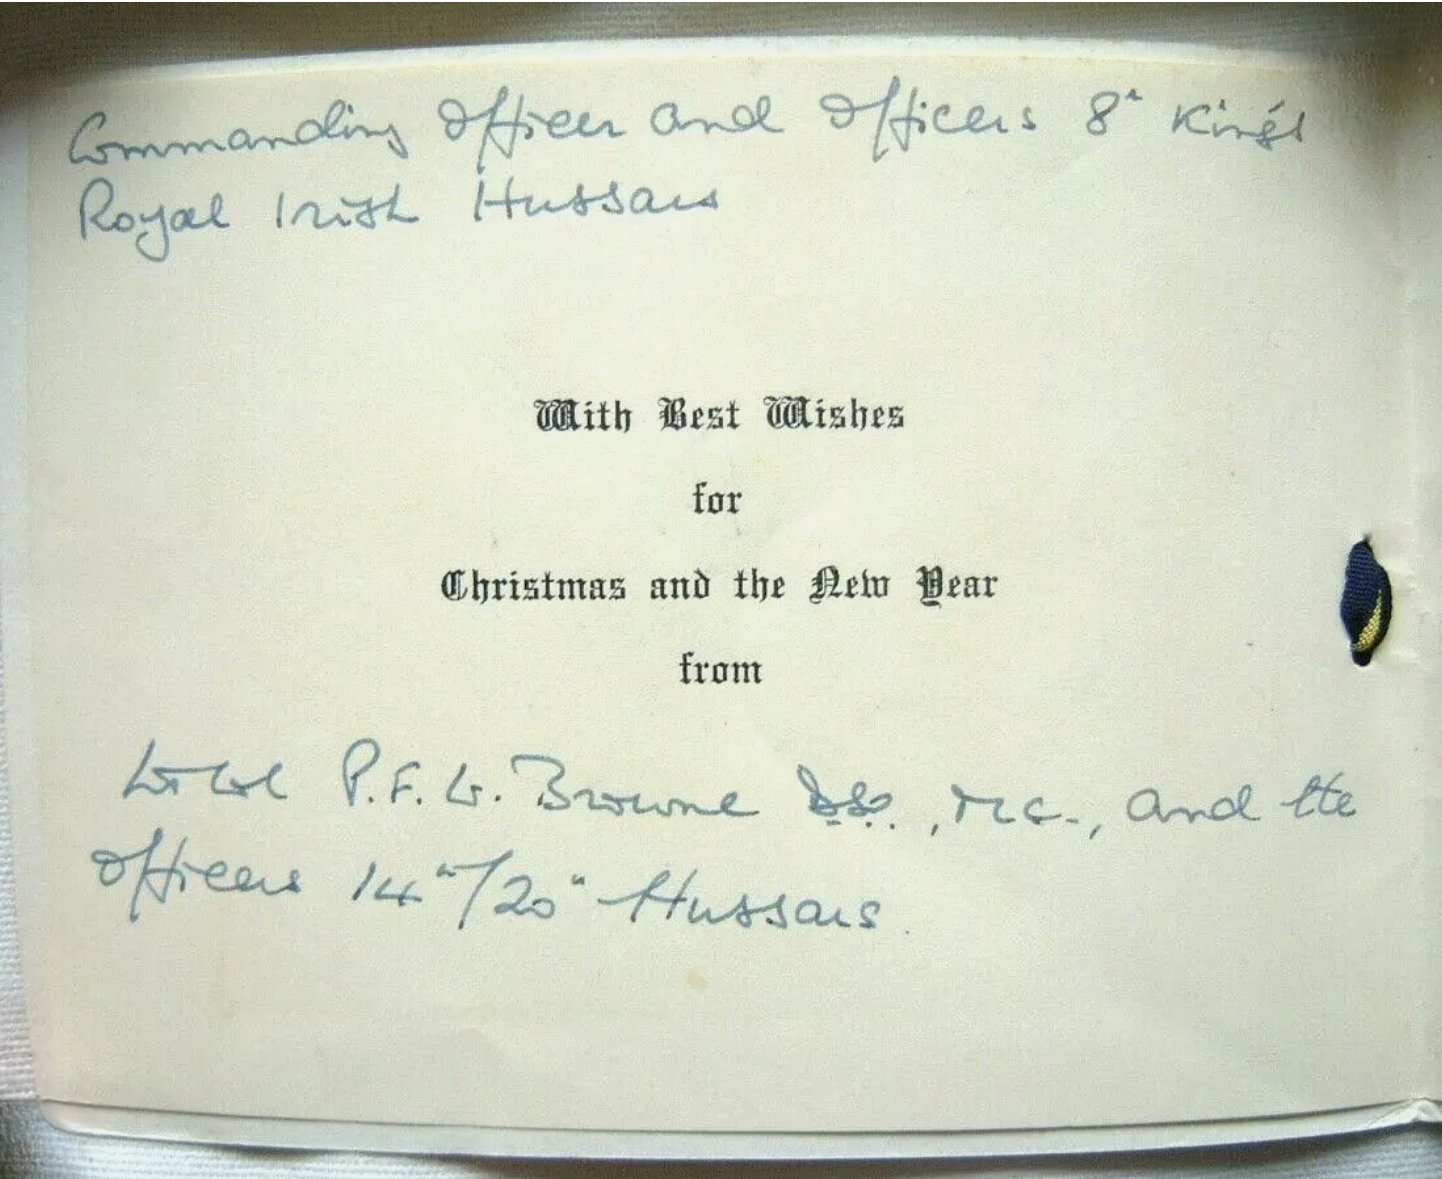 Commanding Officer and Officers 8th King's
Royal Irish Hussars
With Best Wishes
for
Christmas and the New Year
from
Lt Col P.F.W. Browne D.S.O., M.C., and the
Officers 14th/20th Hussars.